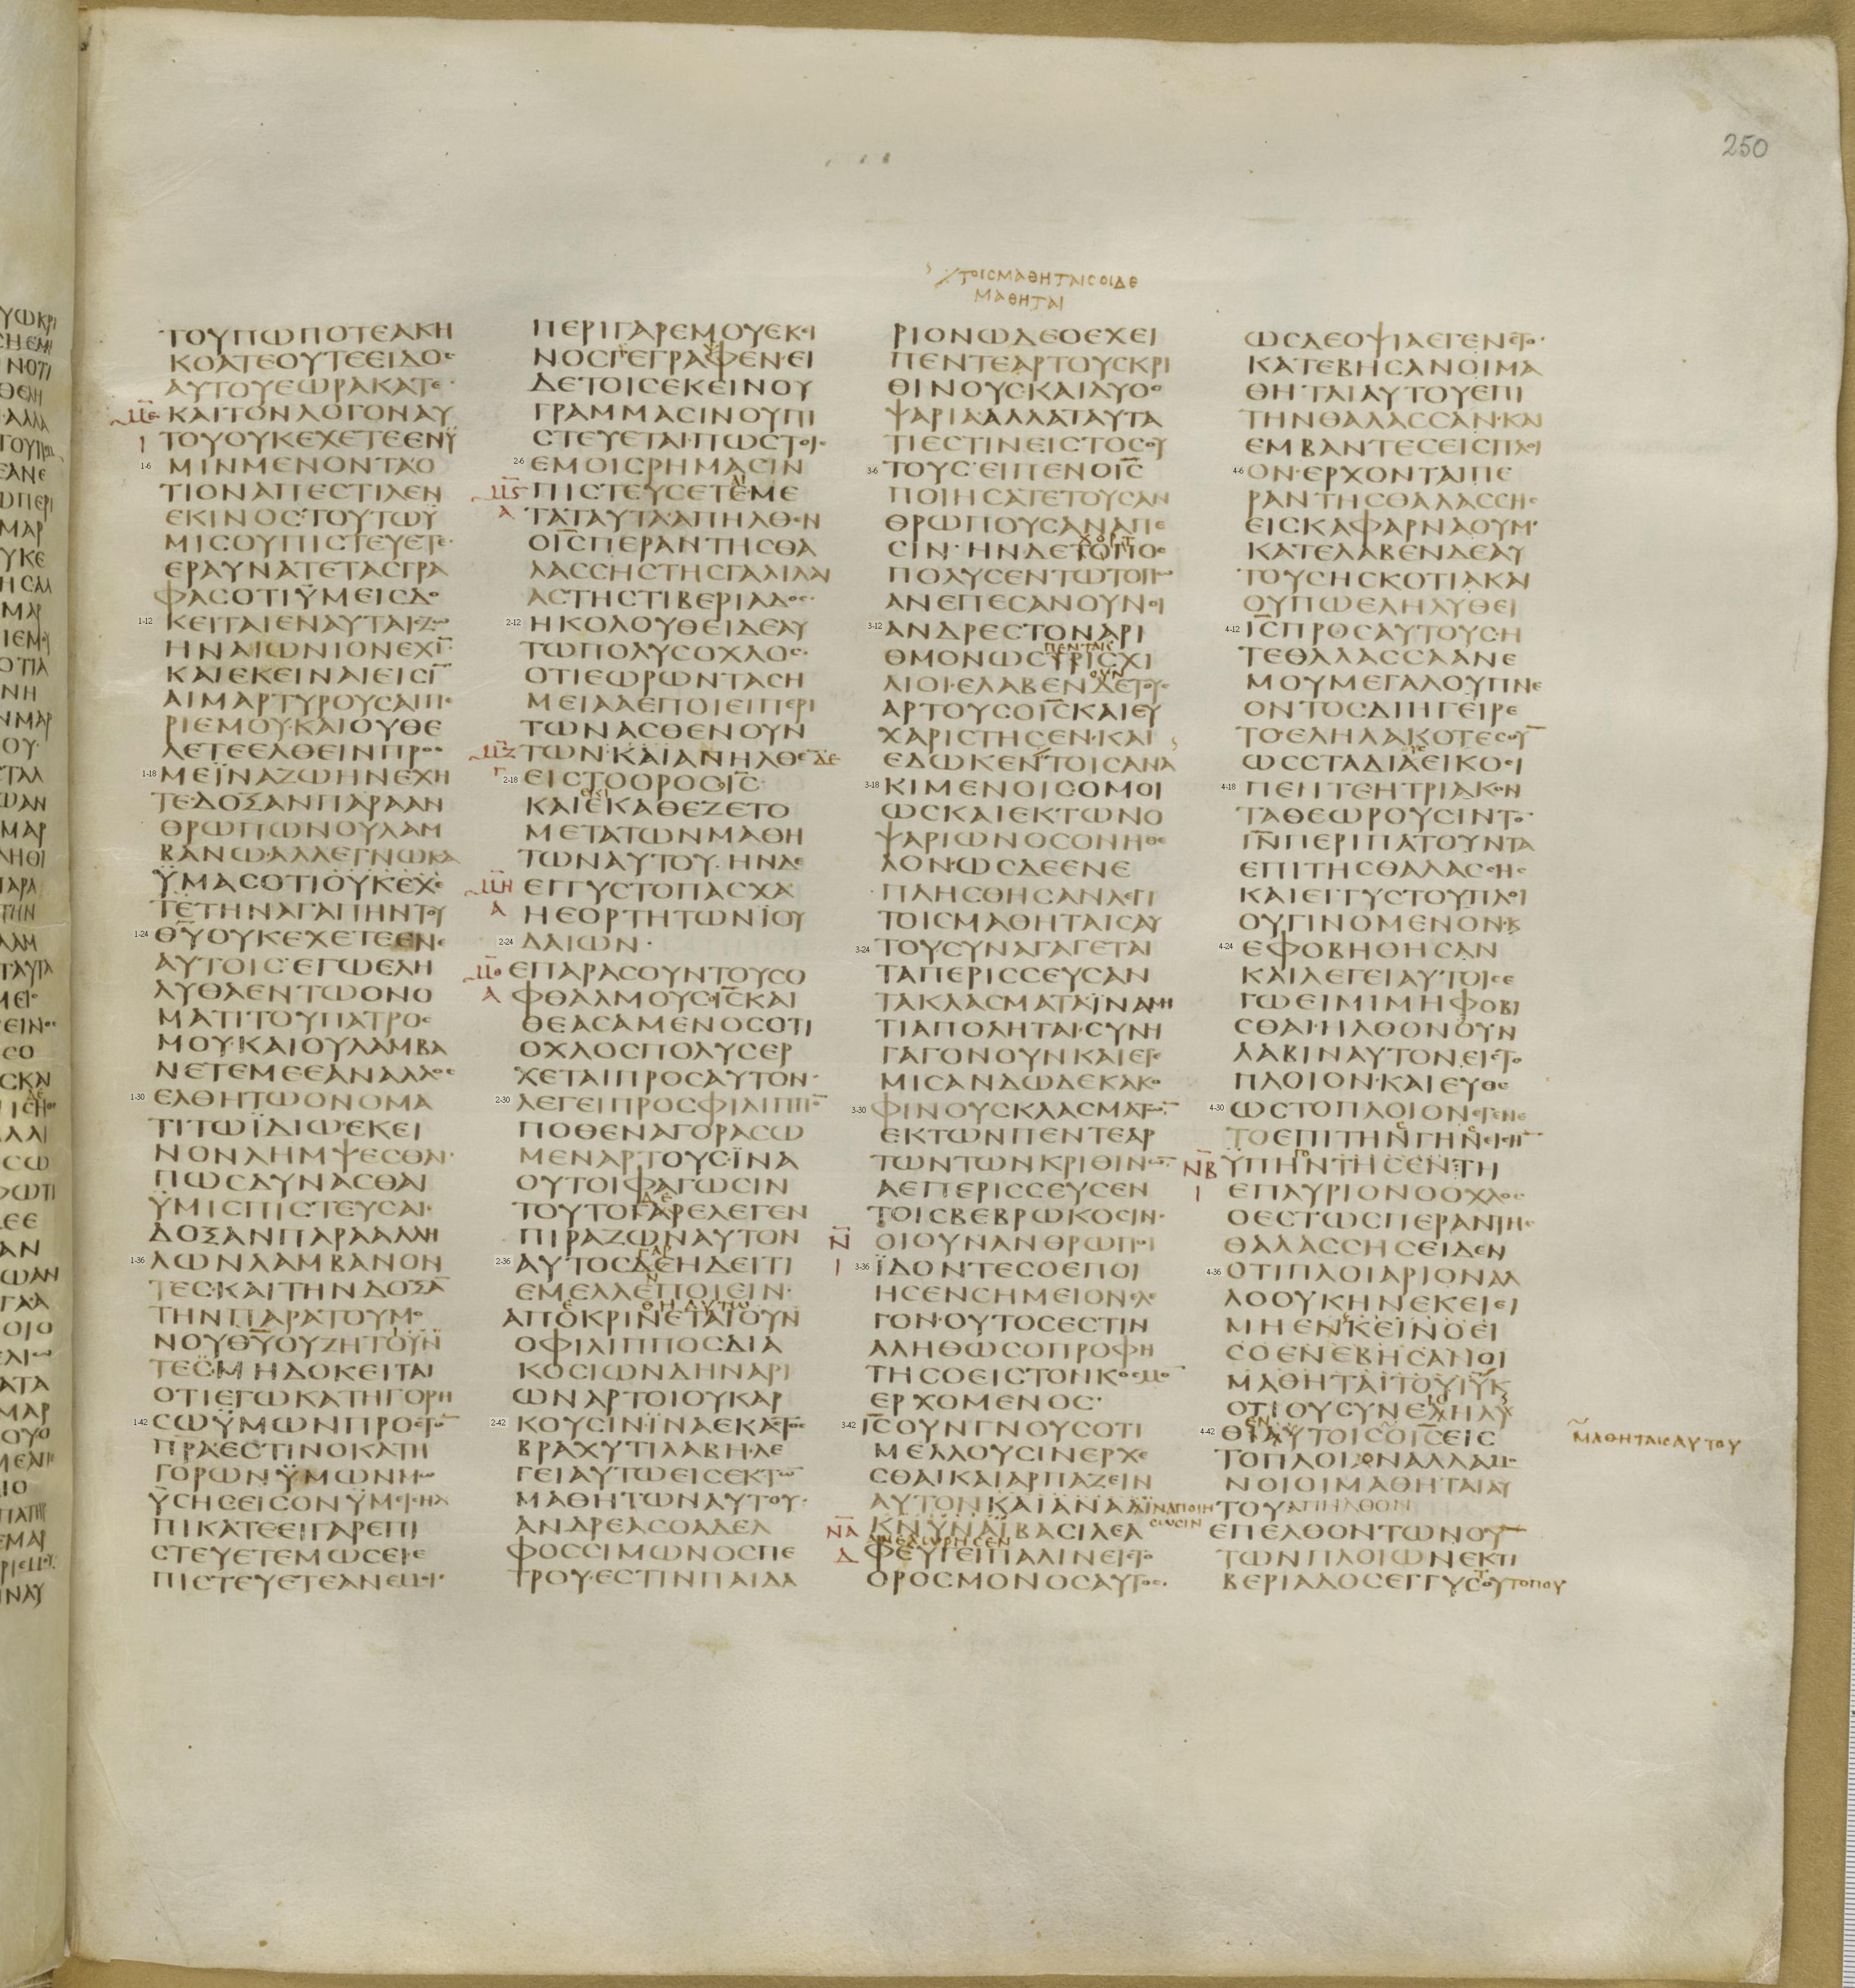 250
ΤΟΙΣΜΑΘΗΤΑΙΣΟΙΔΕ
ΜΑΘΗΤΑΙ
ΤΟΥΠΩΠΟΤΕΑΚΗ
ΚΟΑΤΕΟΥΤΕΕΙΔΟΣ
ΑΥΤΟΥΕΩΡΑΚΑΤΕ·
ΜΕ ΚΑΙΤΟΝΛΟΓΟΝΑΥ
Ι ΤΟΥΟΥΚΕΧΕΤΕΕΝΫ
ΜΙΝΜΕΝΟΝΤΑΟ
ΤΙΟΝΑΠΕΣΤΙΛΕΝ
ΕΚΙΝΟΣ·ΤΟΥΤΩΫ
ΜΙΣΟΥΠΙΣΤΕΥΕΤΕ·
ΕΡΑΥΝΑΤΕΤΑΣΓΡΑ
ΦΑΣΟΤΙΫΜΕΙΣΔΟ
ΚΕΙΤΑΙΕΝΑΥΤΑΙΣΖΩ
ΗΝΑΙΩΝΙΟΝΕΧΙ̅
ΚΑΙΕΚΕΙΝΑΙΕΙΣΙ̅
ΑΙΜΑΡΤΥΡΟΥΣΑΙΠΕ
ΡΙΕΜΟΥ·ΚΑΙΟΥΘΕ
ΛΕΤΕΕΛΘΕΙΝΠΡΟΣ
ΜΕΪΝΑΖΩΗΝΕΧΗ
ΤΕ·ΔΟΞΑΝΠΑΡΑΑΝ
ΘΡΩΠΩΝΟΥΛΑΜ
ΒΑΝΩ·ΑΛΛΕΓΝΩΚΑ
ΫΜΑΣΟΤΙΟΥΚΕΧΕ
ΤΕΤΗΝΑΓΑΠΗΝΤΟΥ
Θ̅Υ̅ΟΥΚΕΧΕΤΕΕΝΕ
ΑΥΤΟΙΣ·ΕΓΩΕΛΗ
ΛΥΘΑΕΝΤΩΟΝΟ
ΜΑΤΙΤΟΥΠΑΤΡΟΣ
ΜΟΥ·ΚΑΙΟΥΛΑΜΒΑ
ΝΕΤΕΜΕΕΑΝΑΛΛΟΣ
ΕΛΘΗΤΩΟΝΟΜΑ
ΤΙΤΩΪΔΙΩ·ΕΚΕΙ
ΝΟΝΛΗΜΨΕΣΘΑΙ·
ΠΩΣΔΥΝΑΣΘΑΙ
ΫΜΙΣΠΙΣΤΕΥΣΑΙ·
ΔΟΞΑΝΠΑΡΑΑΛΛΗ
ΛΩΝΛΑΜΒΑΝΟΝ
ΤΕΣ·ΚΑΙΤΗΝΔΟΞΑ̅
ΤΗΝΠΑΡΑΤΟΥΜΟ
ΝΟΥΘ̅Υ̅ΟΥΖΗΤΟΥΝ
ΤΕΣ·ΜΗΔΟΚΕΙΤΑΙ
ΟΤΙΕΓΩΚΑΤΗΓΟΡΗ
ΣΩΫΜΩΝΠΡΟΣΤΟ̅
Π̅Ρ̅Α·ΕΣΤΙΝΟΚΑΤΗ
ΓΟΡΩΝΫΜΩΝΜΩ
ΫΣΗΣΕΙΣΟΝΫΜΕΙΣΗΛ
ΠΙΚΑΤΕΕΙΓΑΡΕΠΙ
ΣΤΕΥΕΤΕΜΩΣΕΙΕ
ΠΙΣΤΕΥΕΤΕΑΝΕΜΟΙ·
ΠΕΡΙΓΑΡΕΜΟΥΕΚΙ
ΝΟΣΓΕΓΡΑΦΕΝ·ΕΙ
ΔΕΤΟΙΣΕΚΕΙΝΟΥ
ΓΡΑΜΜΑΣΙΝΟΥΠΙ
ΣΤΕΥΕΤΑΙ·ΠΩΣΤΟΙΣ
ΕΜΟΙΣΡΗΜΑΣΙΝ
ΜϚ ΠΙΣΤΕΥΣΕΤΕΜΕ
Α ΤΑΤΑΥΤΑ·ΑΠΗΛΘΕΝ
ΟΙ̅Σ̅ΠΕΡΑΝΤΗΣΘΑ
ΛΑΣΣΗΣΤΗΣΓΑΛΙΛΑΙ
ΑΣΤΗΣΤΙΒΕΡΙΑΔΟΣ·
ΗΚΟΛΟΥΘΕΙΔΕΑΥ
ΤΩΠΟΛΥΣΟΧΛΟΣ·
ΟΤΙΕΩΡΩΝΤΑΣΗ
ΜΕΙΑΑΕΠΟΙΕΙΠΕΡΙ
ΤΩΝΑΣΘΕΝΟΥΝ
ΜΖ ΤΩΝ·ΚΑΙΑΠΗΛΘΕ ΔΕ
Γ ΕΙΣΤΟΟΡΟΣΟΙ̅Σ̅
ΚΑΙΕΚΑΘΕΖΕΤΟ
ΜΕΤΑΤΩΝΜΑΘΗ
ΤΩΝΑΥΤΟΥ·ΗΝΔΕ
ΜΗ ΕΓΓΥΣΤΟΠΑΣΧΑ
Α ΗΕΟΡΤΗΤΩΝΪΟΥ
ΔΑΙΩΝ·
ΜΘ ΕΠΑΡΑΣΟΥΝΤΟΥΣΟ
Α ΦΘΑΛΜΟΥΣΟΙ̅Σ̅ΚΑΙ
ΘΕΑΣΑΜΕΝΟΣΟΤΙ
ΟΧΛΟΣΠΟΛΥΣΕΡ
ΧΕΤΑΙΠΡΟΣΑΥΤΟΝ·
ΛΕΓΕΙΠΡΟΣΦΙΛΙΠΠΟ̅
ΠΟΘΕΝΑΓΟΡΑΣΩ
ΜΕΝΑΡΤΟΥΣ·ΪΝΑ
ΟΥΤΟΙΦΑΓΩΣΙΝ
ΔΕ
ΤΟΥΤΟΓΑΡΕΛΕΓΕΝ
ΠΙΡΑΖΩΝΑΥΤΟΝ
ΓΑΡ
ΑΥΤΟΣΔΕΗΔΕΙΤΙ
ΕΜΕΛΛΕΠΟΙΕΙΝ·
ΘΗΑΥΤΩ
ΑΠΟΚΡΙΝΕΤΑΙΟΥΝ
ΟΦΙΛΙΠΠΟΣΔΙΑ
ΚΟΣΙΩΝΔΗΝΑΡΙ
ΩΝΑΡΤΟΙΟΥΚΑΡ
ΚΟΥΣΙΝ·ΪΝΑΕΚΑΣΤΟΣ
ΒΡΑΧΥΤΙΛΑΒΗ·ΛΕ
ΓΕΙΑΥΤΩΕΙΣΕΚΤΩ̅
ΜΑΘΗΤΩΝΑΥΤΟΥ·
ΑΝΔΡΕΑΣΟΑΔΕΛ
ΦΟΣΣΙΜΩΝΟΣΠΕ
ΤΡΟΥ·ΕΣΤΙΝΠΑΙΔΑ
ΡΙΟΝΩΔΕΟΕΧΕΙ
ΠΕΝΤΕΑΡΤΟΥΣΚΡΙ
ΘΙΝΟΥΣ·ΚΑΙΔΥΟΟ
ΨΑΡΙΑ·ΑΛΛΑΤΑΥΤΑ
ΤΙΕΣΤΙΝΕΙΣΤΟΣΟΥ
ΤΟΥΣ·ΕΙΠΕΝΟΙ̅Σ̅
ΠΟΙΗΣΑΤΕΤΟΥΣΑΝ
ΘΡΩΠΟΥΣΑΝΑΠΕ
ΧΟΡΤ
ΣΙΝ·ΗΝΔΕΤΟΠΟΣ
ΠΟΛΥΣΕΝΤΩΤΟΠΩ
ΑΝΕΠΕΣΑΝΟΥΝΟΙ
ΑΝΔΡΕΣΤΟΝΑΡΙ
ΠΕΝΤΑΙΣ
ΘΜΟΝΩΣΤΡΙΣΧΙ
ΟΥΝ
ΛΙΟΙ·ΕΛΑΒΕΝΔΕΤΟΥΣ
ΑΡΤΟΥΣΟΙ̅Σ̅ΚΑΙΕΥ
ΧΑΡΙΣΤΗΣΕΝ·ΚΑΙ
ΕΔΩΚΕΝΤΟΙΣΑΝΑ
ΚΙΜΕΝΟΙΣΟΜΟΙ
ΩΣΚΑΙΕΚΤΩΝΟ
ΨΑΡΙΩΝΟΣΟΝΗΘΕ
ΛΟΝ·ΩΣΔΕΕΝΕ
ΠΛΗΣΘΗΣΑΝΛΕΓΙ
ΤΟΙΣΜΑΘΗΤΑΙΣΑΥ
ΤΟΥΣΥΝΑΓΑΓΕΤΑΙ
ΤΑΠΕΡΙΣΣΕΥΣΑΝ
ΤΑΚΛΑΣΜΑΤΑΪΝΑΜΗ
ΤΙΑΠΟΛΗΤΑΙ·ΣΥΝΗ
ΓΑΓΟΝΟΥΝΚΑΙΕΓΕ
ΜΙΣΑΝΔΩΔΕΚΑΚΟ
ΦΙΝΟΥΣΚΛΑΣΜΑΤΩ̅
ΕΚΤΩΝΠΕΝΤΕΑΡ
ΤΩΝΤΩΝΚΡΙΘΙΝΩ̅
ΑΕΠΕΡΙΣΣΕΥΣΕΝ
ΤΟΙΣΒΕΒΡΩΚΟΣΙΝ·
Ν ΟΙΟΥΝΑΝΘΡΩΠΟΙ
Ι ΪΔΟΝΤΕΣΟΕΠΟΙ
ΗΣΕΝΣΗΜΕΙΟΝΕΛΕ
ΓΟΝ·ΟΥΤΟΣΕΣΤΙΝ
ΑΛΗΘΩΣΟΠΡΟΦΗ
ΤΗΣΟΕΙΣΤΟΝΚΟΣΜΟ̅
ΕΡΧΟΜΕΝΟΣ·
Ι̅Σ̅ΟΥΝΓΝΟΥΣΟΤΙ
ΜΕΛΛΟΥΣΙΝΕΡΧΕ
ΣΘΑΙΚΑΙΑΡΠΑΖΕΙΝ
ΑΥΤΟΝΚΑΙΑΝΑΔΙ ΪΝΑΠΟΙΗ
ΣΩΣΙΝ
ΝΑ ΚΝΥΝΑΙΒΑΣΙΛΕΑ
ΑΝΕΧΩΡΗΣΕΝ
Δ ΦΕΥΓΕΙΠΑΛΙΝΕΙΣΤΟ
ΟΡΟΣΜΟΝΟΣΑΥΤΟΣ·
ΩΣΔΕΟΨΙΑΕΓΕΝΕΤΟ·
ΚΑΤΕΒΗΣΑΝΟΙΜΑ
ΘΗΤΑΙΑΥΤΟΥΕΠΙ
ΤΗΝΘΑΛΑΣΣΑΝ·ΚΑΙ
ΕΜΒΑΝΤΕΣΕΙΣΠΛΟΙ
ΟΝ·ΕΡΧΟΝΤΑΙΠΕ
ΡΑΝΤΗΣΘΑΛΑΣΣΗΣ
ΕΙΣΚΑΦΑΡΝΑΟΥΜ·
ΚΑΤΕΛΑΒΕΝΔΕΑΥ
ΤΟΥΣΗΣΚΟΤΙΑΚΑΙ
ΟΥΠΩΕΛΗΛΥΘΕΙ
Ι̅Σ̅ΠΡΟΣΑΥΤΟΥΣ·Η
ΤΕΘΑΛΑΣΣΑΑΝΕ
ΜΟΥΜΕΓΑΛΟΥΠΝΕ
ΟΝΤΟΣΔΙΗΓΕΙΡΕ
ΤΟ·ΕΛΗΛΑΚΟΤΕΣΟΥ̅
ΩΣΣΤΑΔΙΑΕΙΚΟΣΙ
ΠΕΝΤΕΗΤΡΙΑΚΟΝ
ΤΑΘΕΩΡΟΥΣΙΝΤΟ̅
Ι̅Ν̅ΠΕΡΙΠΑΤΟΥΝΤΑ
ΕΠΙΤΗΣΘΑΛΑΣΣΗΣ
ΚΑΙΕΓΓΥΣΤΟΥΠΛΟΙ
ΟΥΓΙΝΟΜΕΝΟΝ·Κ
ΕΦΟΒΗΘΗΣΑΝ
ΚΑΙΛΕΓΕΙΑΥΤΟΙΣΕ
ΓΩΕΙΜΙΜΗΦΟΒΙ
ΣΘΑΙ·ΗΛΘΟΝΟΥΝ
ΛΑΒΙΝΑΥΤΟΝΕΙΣΤΟ
ΠΛΟΙΟΝ·ΚΑΙΕΥΘΕ
ΩΣΤΟΠΛΟΙΟΝΕΓΕΝΕ
ΤΟΕΠΙΤΗΝΓΗΝΕΙΣΗ̅
ΝΒ ΫΠΗΝΤΗΣΕΝ·ΤΗ
Ι ΕΠΑΥΡΙΟΝΟΟΧΛΟΣ·
ΟΕΣΤΩΣΠΕΡΑΝΤΗΣ
ΘΑΛΑΣΣΗΣΕΙΔΕΝ
ΟΤΙΠΛΟΙΑΡΙΟΝΑΛ
ΛΟΟΥΚΗΝΕΚΕΙΕΙ
ΜΗΕΝΚΕΙΝΟΕΙ
ΣΟΕΝΕΒΗΣΑΝΟΙ
ΜΑΘΗΤΑΙΤΟΥΙ̅Υ̅Κ
ΟΤΙΟΥΣΥΝΕΛΗΛΥ
ΘΙΑΥΤΟΙΣΟΙ̅Σ̅ΕΙΣ
ΜΑΘΗΤΑΙΣΑΥΤΟΥ
ΤΟΠΛΟΙΟΝΑΛΛΑΜΟ
ΝΟΙΟΙΜΑΘΗΤΑΙΑΥ
ΤΟΥΑΠΗΛΘΟΝ
ΕΠΕΛΘΟΝΤΩΝΟΥ̅
ΤΩΝΠΛΟΙΩΝΕΚΤΙ
ΒΕΡΙΑΔΟΣΕΓΓΥΣΟΥΤΟΠΟΥ